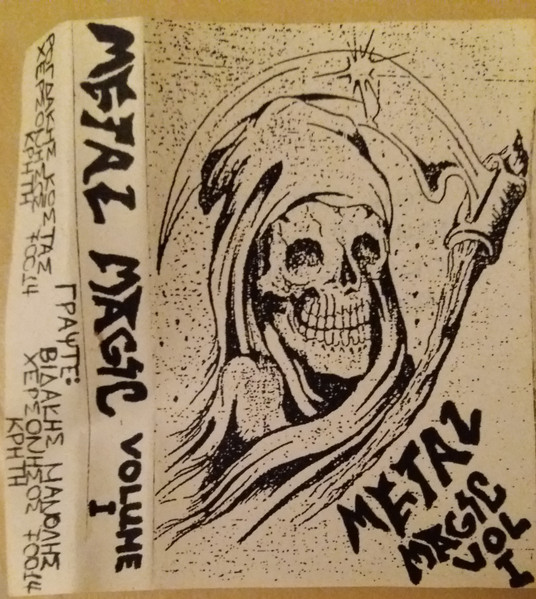 METAL MAGIC VOLUME
I
ΓΡΑΨΤΕ:
ΚΟΣΤΑΣ
ΧΕΡΣΟΝΗΣΟΣ 70014
ΚΡΗΤΗ
ΒΙΔΑΚΗΣ ΜΑΝΟΛΗΣ
ΧΕΡΣΟΝΗΣΟΣ 70014
ΚΡΗΤΗ
METAL
MAGIC
VOL
I